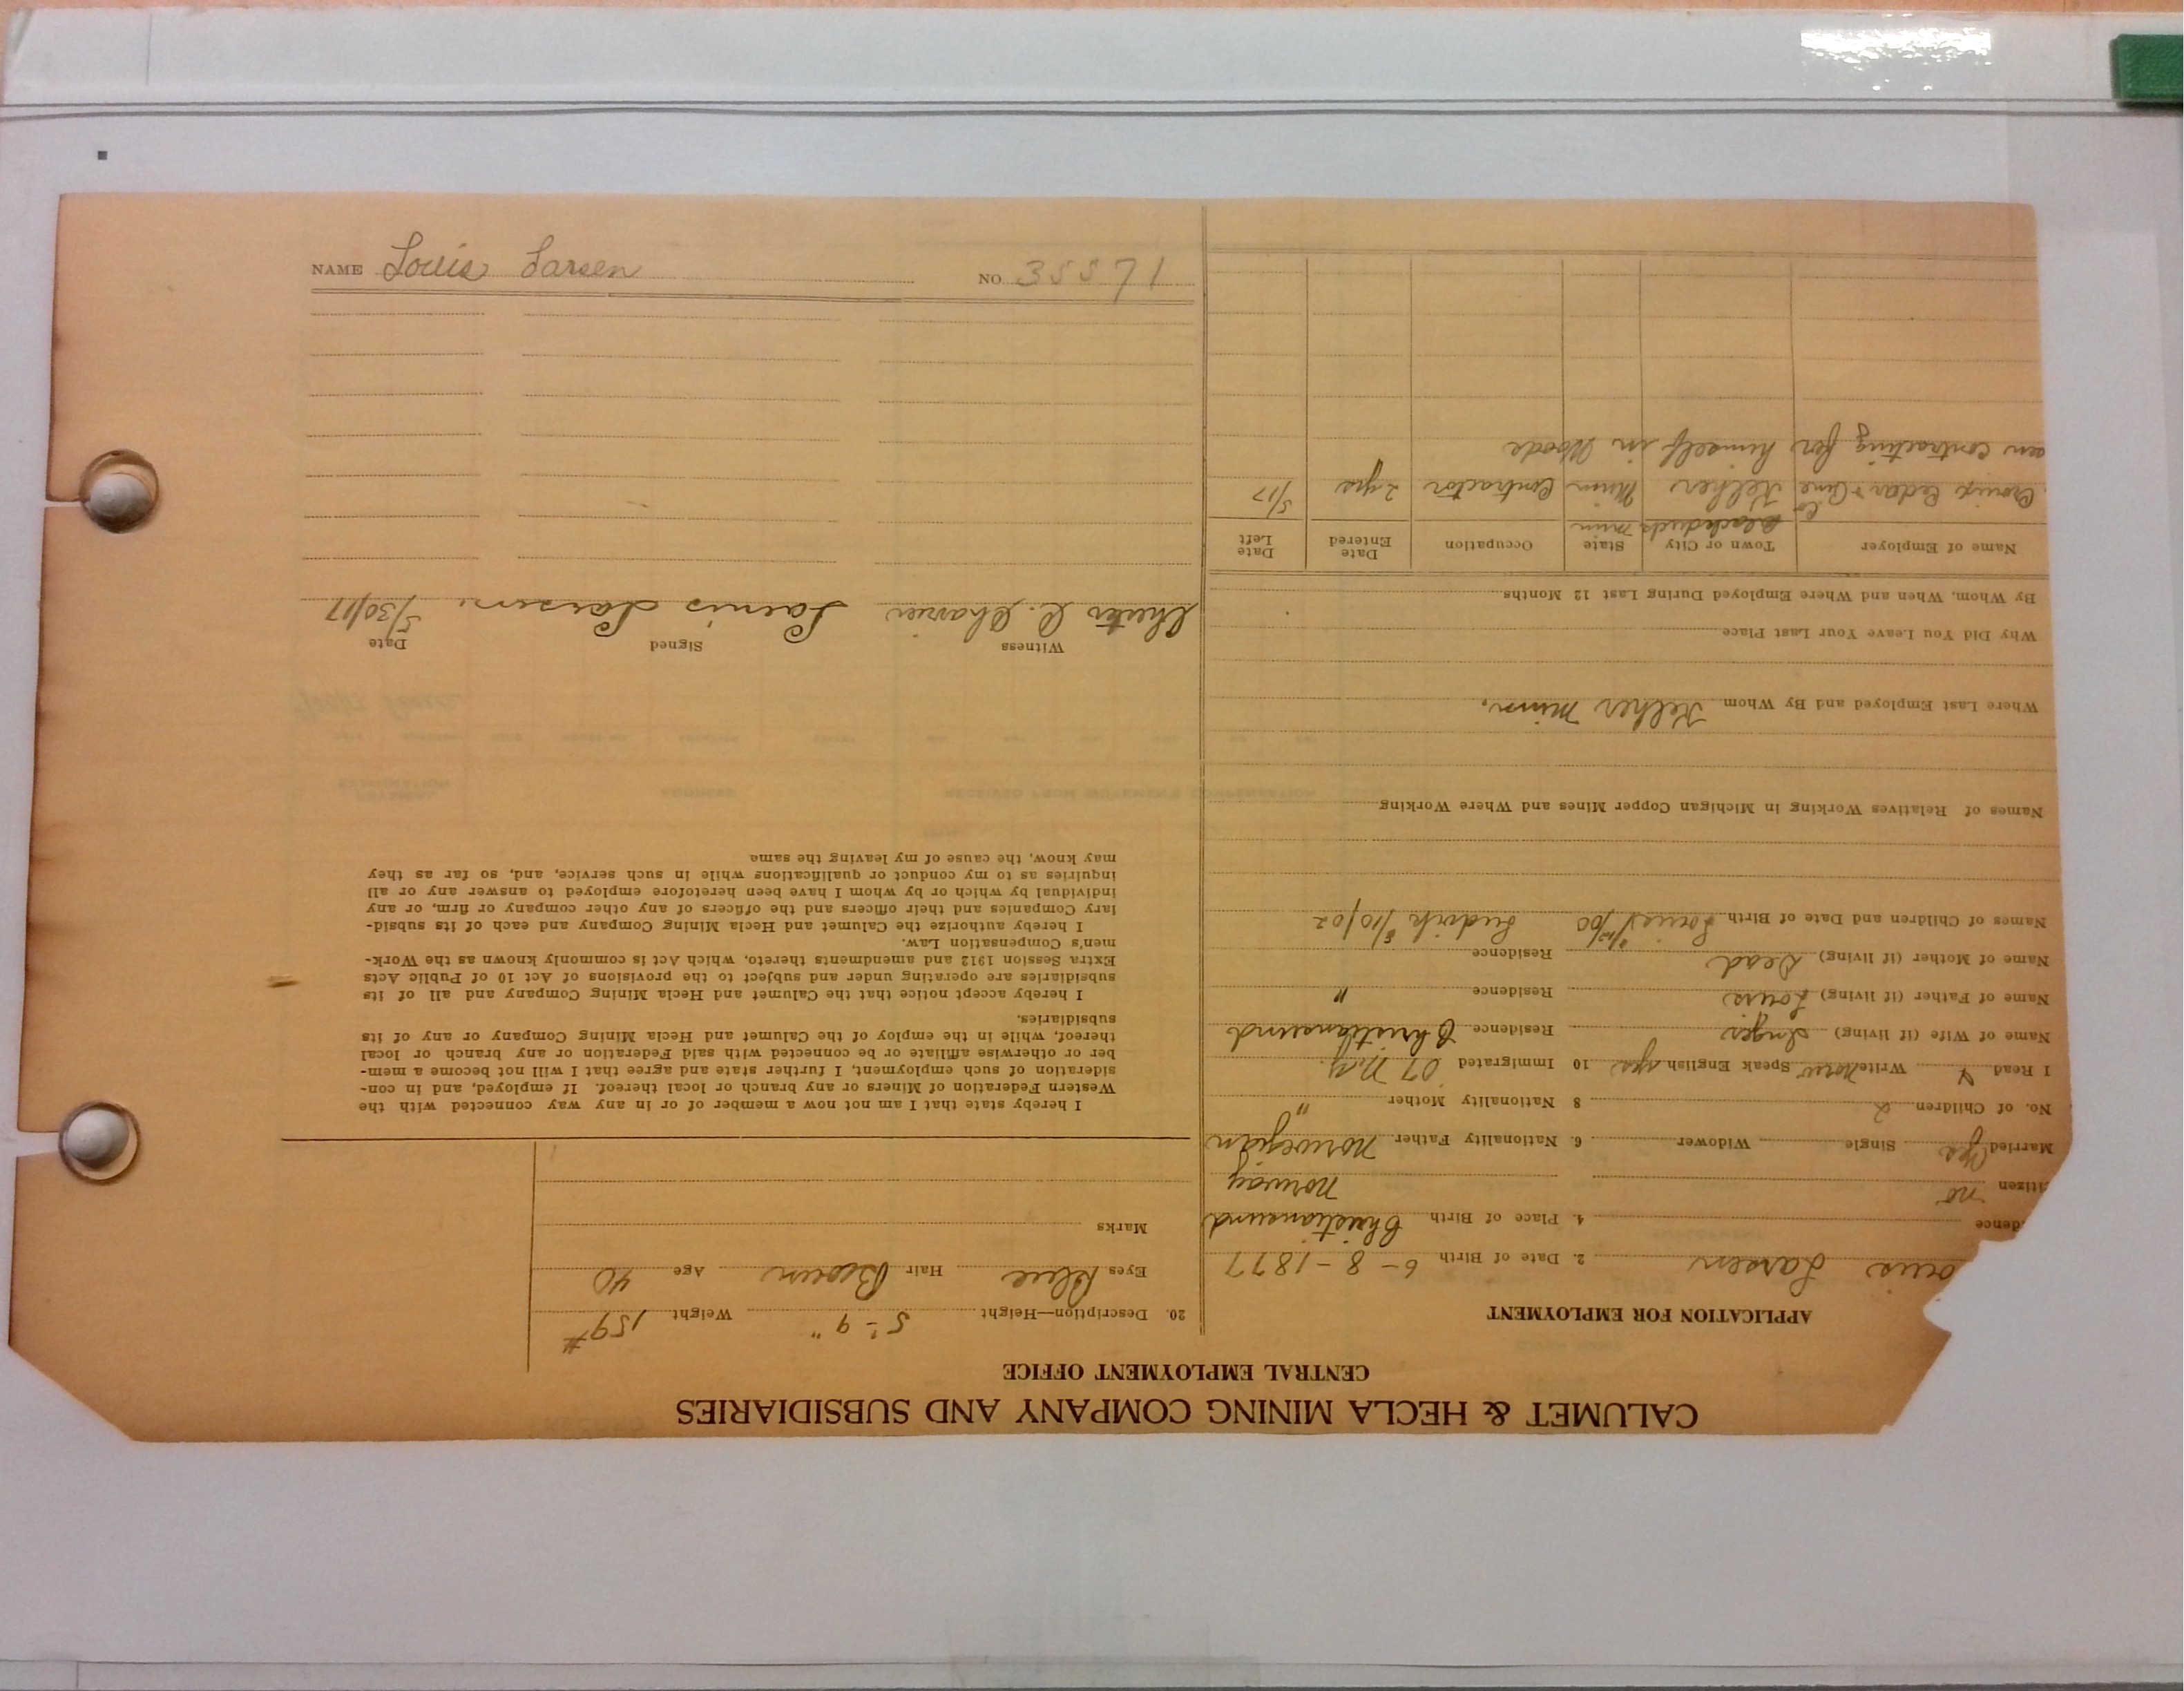 CALUMET & HECLA MINING COMPANY AND SUBSIDIARIES
CENTRAL EMPLOYMENT OFFICE
APPLICATION FOR EMPLOYMENT
ouis Larsen 2. Date of Birth 6-8-1877
dence 4. Place of Birth Christiansund
itizen no Norway
Married Yes Single Widower 6. Nationality Father Norwegian
No. of Children 2 8 Nationality Mother "
I Read Write Norw Speak English yes 10 Immigrated '07 N.Y.
Name of Wife (if living) Inger Residence Christiansund
Name of Father (if living) Louis Residence "
Name of Mother (if living) Dead Residence
Names of Children and Date of Birth Ludvik 8/10/02
Names of Relatives Working in Michigan Copper Mines and Where Working
Where Last Employed and By Whom Kelher Minn.
Why Did You Leave Your Last Place
By Whom, When and Where Employed During Last 12 Months
Name of Employer Town or City State Occupation Date Entered Date Left
Minn
Cedar & Co Kelher Minn Contractor 2 yrs 5/17
een contracting for himself in Woods
20. Description—Height 5'-9" Weight 159#
Eyes Blue Hair Brown Age 40
Marks
I hereby state that I am not now a member of or in any way connected with the
Western Federation of Miners or any branch or local thereof. If employed, and in con-
sideration of such employment, I further state and agree that I will not become a mem-
ber or otherwise affiliate or be connected with said Federation or any branch or local
thereof, while in the employ of the Calumet and Hecla Mining Company or any of its
subsidiaries.
I hereby accept notice that the Calumet and Hecla Mining Company and all of its
subsidiaries are operating under and subject to the provisions of Act 10 of Public Acts
Extra Session 1912 and amendments thereto, which Act is commonly known as the Work-
men's Compensation Law.
I hereby authorize the Calumet and Hecla Mining Company and each of its subsid-
iary Companies and their officers and the officers of any other company or firm, or any
individual by which or by whom I have been heretofore employed to answer any or all
inquiries as to my conduct or qualifications while in such service, and, so far as they
may know, the cause of my leaving the same
Witness Signed Date
Chester C. Louis Larsen. 5/30/17
NAME Louis Larsen NO. 35571